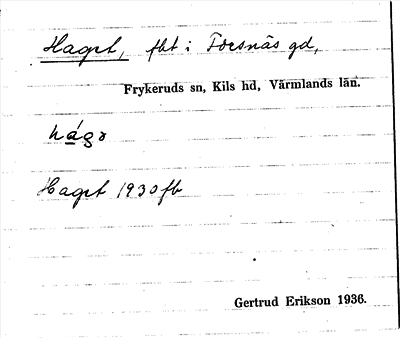 Haget, fbt i Forsnäs gd,
Frykeruds sn, Kils hd, Värmlands län.
Haget 1930 fb
Gertrud Erikson 1936.